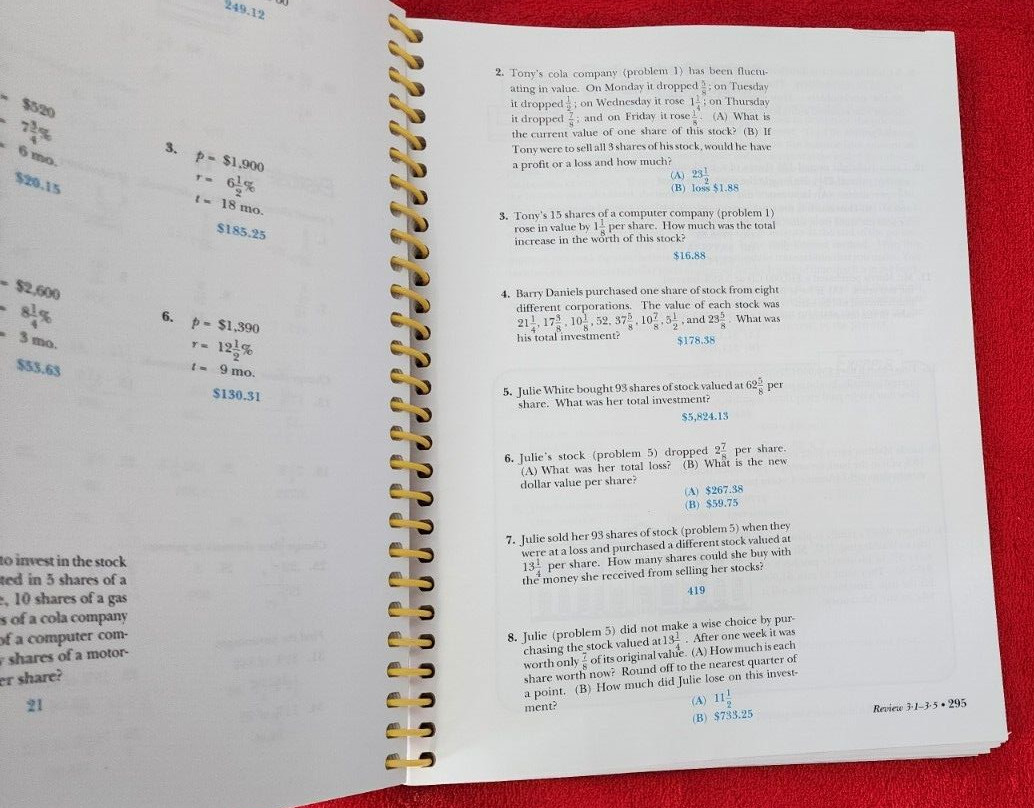 249.12
$520
7 3/4%
6 mo.
$20.15
3. p = $1,900
r = 6 1/2%
t = 18 mo.
$185.25
$2,600
8 1/4%
3 mo.
$53.63
6. p = $1,390
r = 12 1/2%
t = 9 mo.
$130.31
to invest in the stock
ted in 5 shares of a
, 10 shares of a gas
s of a cola company
of a computer com-
shares of a motor-
er share?
21
2. Tony's cola company (problem 1) has been fluctu-
ating in value. On Monday it dropped 5/8; on Tuesday
it dropped 1/2; on Wednesday it rose 1 1/4; on Thursday
it dropped 7/8; and on Friday it rose 1/8. (A) What is
the current value of one share of this stock? (B) If
Tony were to sell all 3 shares of his stock, would he have
a profit or a loss and how much?
(A) 23 1/2
(B) loss $1.88
3. Tony's 15 shares of a computer company (problem 1)
rose in value by 1 1/8 per share. How much was the total
increase in the worth of this stock?
$16.88
4. Barry Daniels purchased one share of stock from eight
different corporations. The value of each stock was
21 1/4, 17 3/8, 10 1/8, 52, 37 5/8, 10 7/8, 5 1/2, and 23 5/8. What was
his total investment?
$178.38
5. Julie White bought 93 shares of stock valued at 62 5/8 per
share. What was her total investment?
$5,824.13
6. Julie's stock (problem 5) dropped 2 7/8 per share.
(A) What was her total loss? (B) What is the new
dollar value per share?
(A) $267.38
(B) $59.75
7. Julie sold her 93 shares of stock (problem 5) when they
were at a loss and purchased a different stock valued at
13 1/4 per share. How many shares could she buy with
the money she received from selling her stocks?
419
8. Julie (problem 5) did not make a wise choice by pur-
chasing the stock valued at 13 1/4. After one week it was
worth only 7/8 of its original value. (A) How much is each
share worth now? Round off to the nearest quarter of
a point. (B) How much did Julie lose on this invest-
ment?
(A) 11 1/2
(B) $733.25
Review 3·1–3·5 • 295